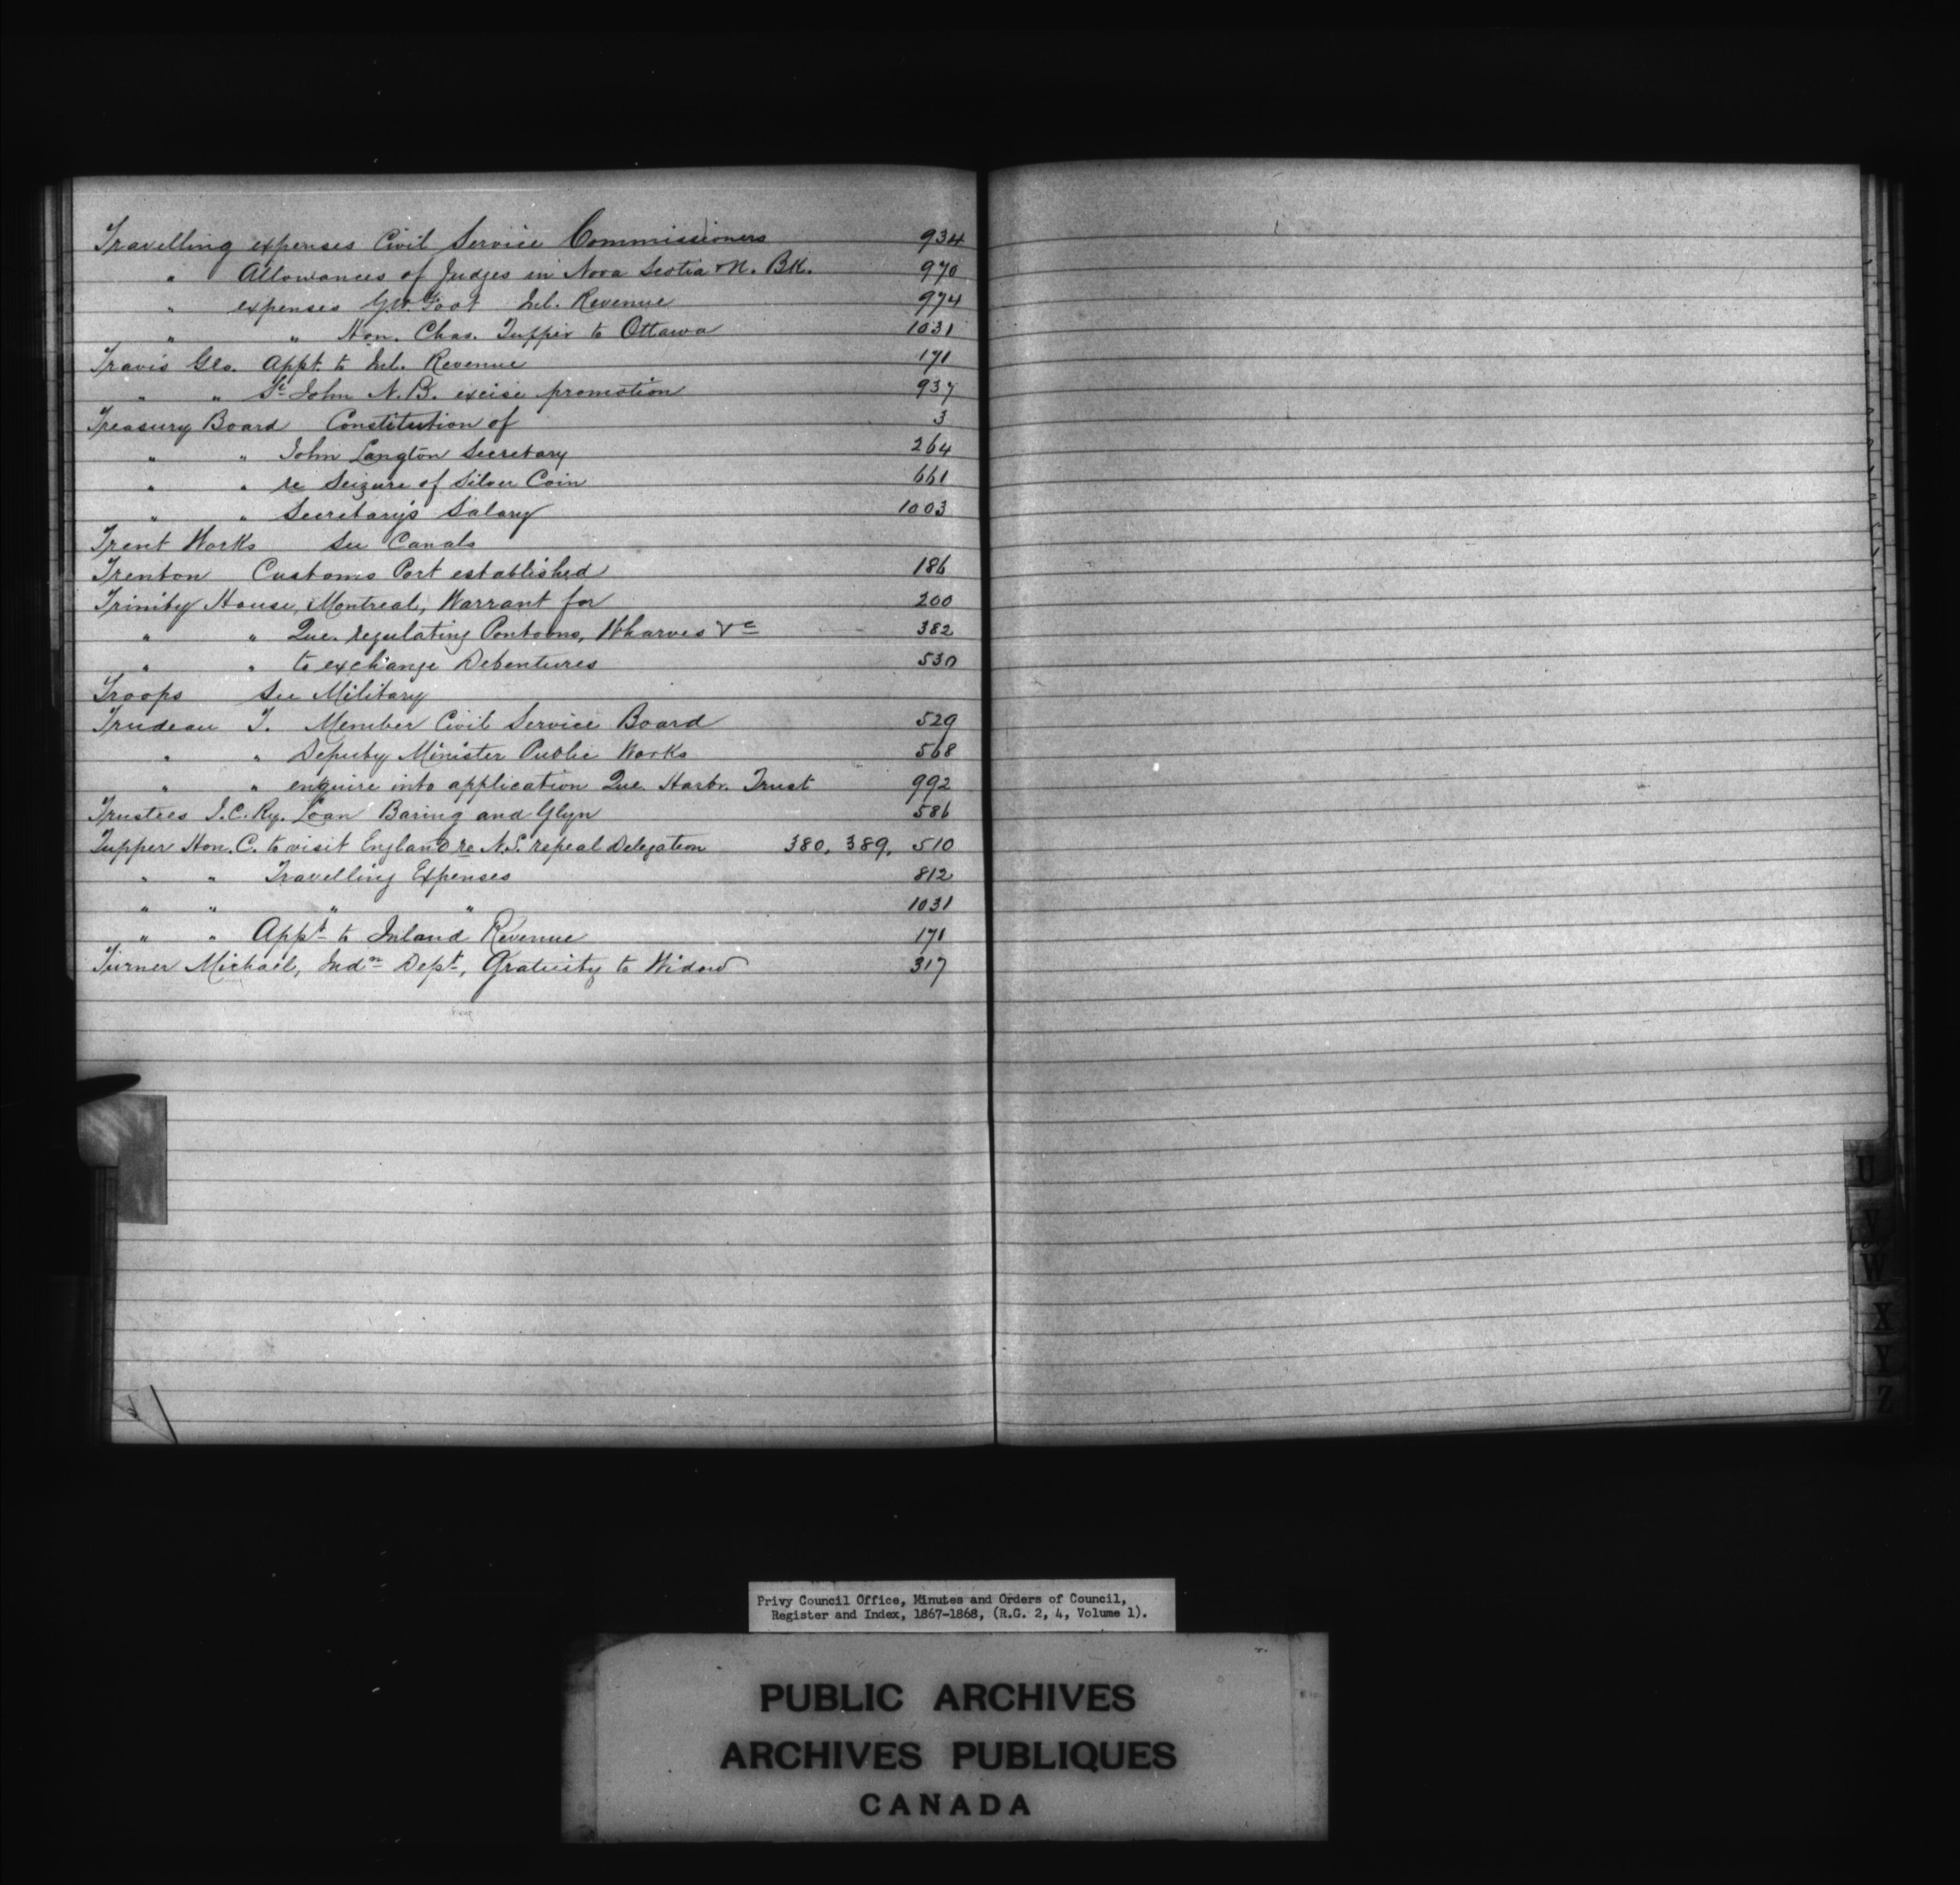 Travelling expenses Civil Service Commissioners 934
" Allowances of Judges in Nova Scotia & N. Bk. 970
" expenses Inl. Revenue 974
" " Hon. Chas. Tupper to Ottawa 1031
Travis Geo. Appt. to Inl. Revenue 171
" " St John N.B. excise promotion 937
Treasury Board Constitution of 3
" " John Langton Secretary 264
" " re Seizure of Silver Coin 661
" " Secretary's Salary 1003
Trent Works See Canals
Trenton Customs Port established 186
Trinity House, Montreal, Warrant for 200
" " Que. regulating Pontoons, Wharves &c 382
" " to exchange Debentures 530
Troops See Military
Trudeau T. Member Civil Service Board 529
" " Deputy Minister Public Works 568
" " enquire into application Que. Harbr. Trust 992
Trustees I.C. Ry. Loan Baring and Glyn 586
Tupper Hon. C. to visit England re N.S. repeal Delegation 380, 389, 510
" " Travelling Expenses 812
" " " " 1031
" " Appt to Inland Revenue 171
Turner Michael, Indn Dept, Gratuity to Widow 317
U
V
W
X
Y
Z
Privy Council Office, Minutes and Orders of Council,
Register and Index, 1867-1868, (R.G. 2, 4, Volume 1).
PUBLIC ARCHIVES
ARCHIVES PUBLIQUES
CANADA